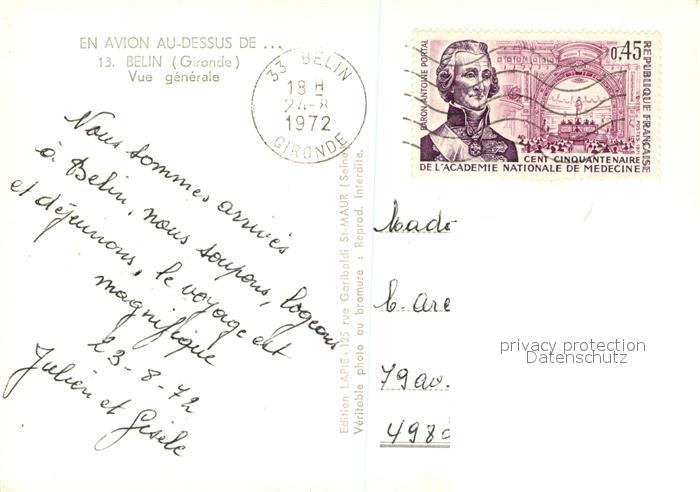 EN AVION AU-DESSUS DE ...
13. BELIN (Gironde)
Vue générale
33 BELIN
18 H
24-8
1972
GIRONDE
BARON ANTOINE PORTAL
0,45
REPUBLIQUE FRANÇAISE
CENT CINQUANTENAIRE
DE L'ACADEMIE NATIONALE DE MEDECINE
Nous sommes arrivés
à Belin, nous soupons, logeons
et déjeunons, le voyage est
magnifique
23-8-72
Julien et Gisèle
Edition LAPIE - 125 rue Garibaldi St-MAUR (Seine
Véritable photo au bromure : Reprod. Interdite.
Mad
79 av.
498
privacy protection
Datenschutz